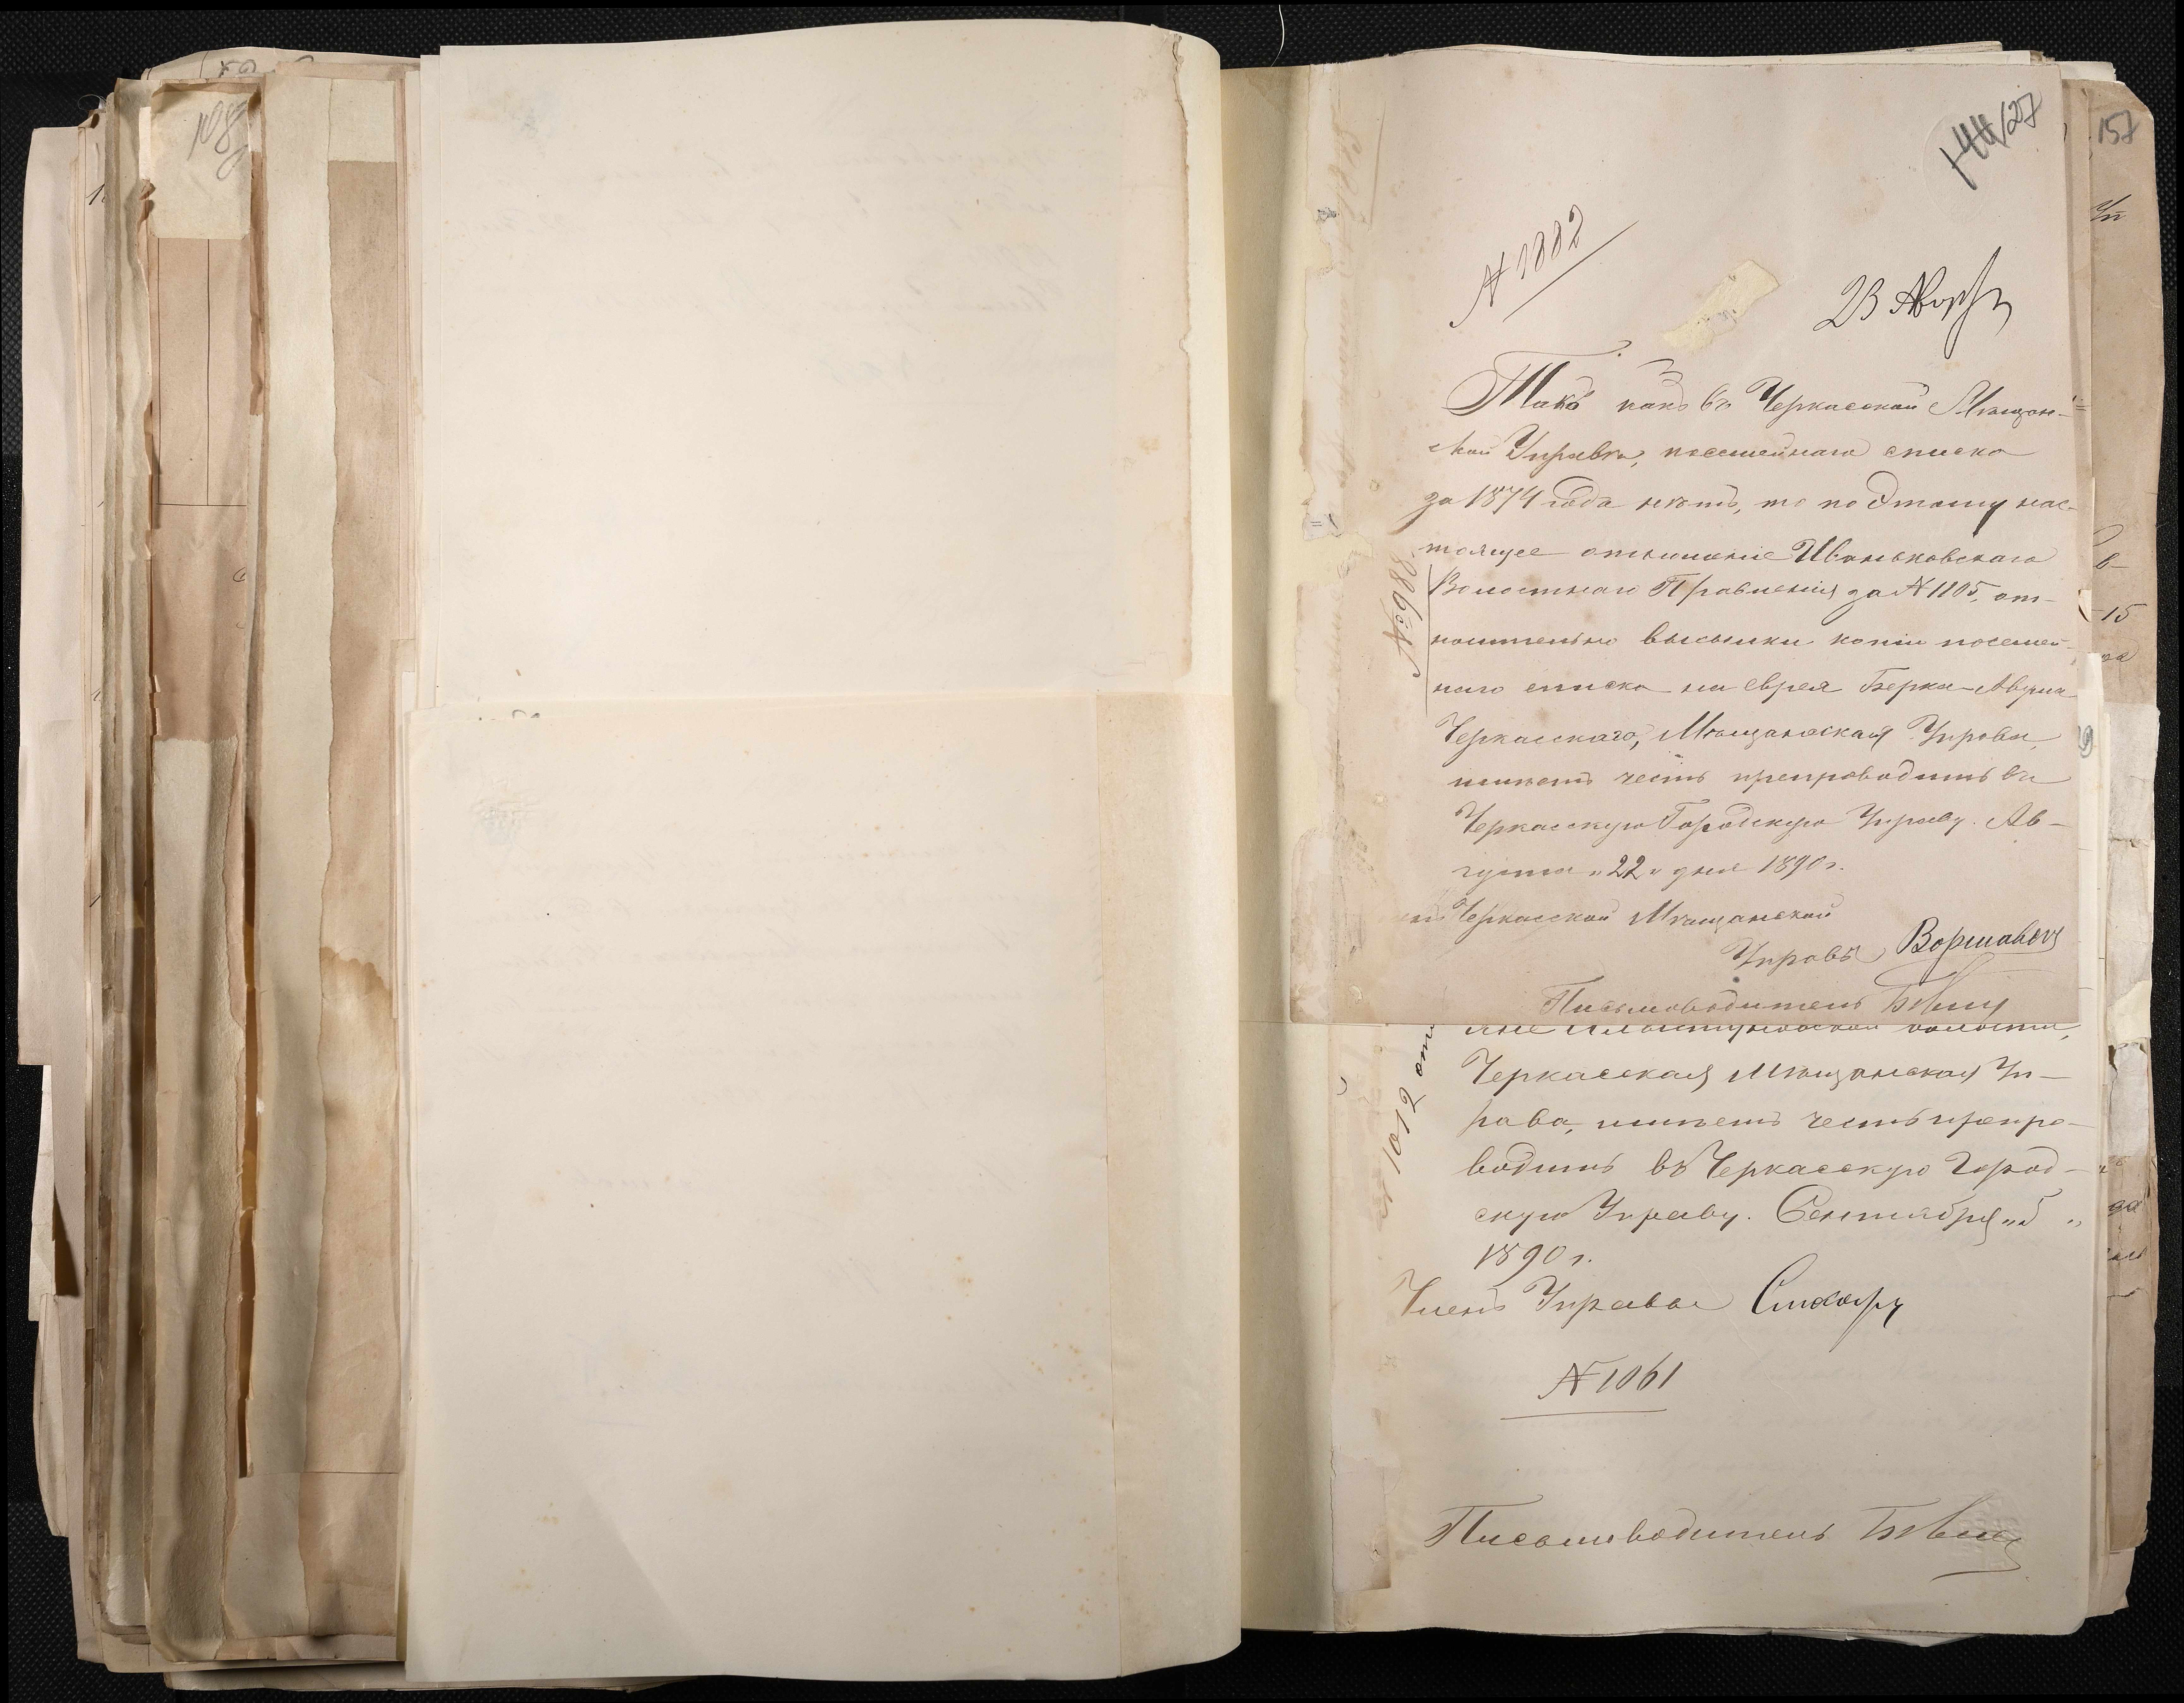 108
144 127
157
N 1882
23 Авг
Такъ какъ въ Черкасской Мѣщан-
ской Управѣ, посемейнаго списка
за 1874 года нѣтъ, то по этому нас-
тоящее отношеніе Иваньковскаго
Волостнаго Правленія за N 1105, от-
носительно высылки копіи посемей-
наго списка на еврея Берка-Авума
Черкасскаго, Мѣщанская Управа,
имѣетъ честь препроводить въ
Черкасскую Городскую Управу. Ав-
густа „22„ дня 1890 г.
Черкасской Мѣщанской
Управы
Письмоводитель
№ 988
волости,
Черкасская Мѣщанская Уп-
рава, имѣетъ честь препро-
водить въ Черкасскую Город-
скую Управу. Сентября „5„
1890 г.
Членъ Управы
N 1061
Письмоводитель
N 1012 отъ
15